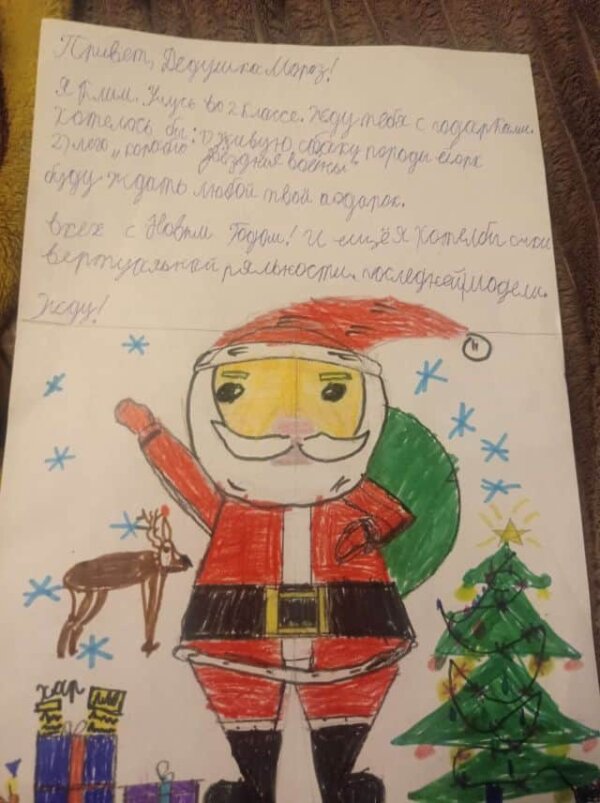 Привет, Дедушка Мороз!
Я Клим. Учусь во 2 классе. Жду тебя с подарками.
Хотелось бы: 1) живую собаку породы йорк
2) лего „корабль звёздные воены"
буду ждать любой твой подарок.
всех с Новым Годом! И ещё я хотел бы очки
вертуальной ряльности, последней модели.
Жду!